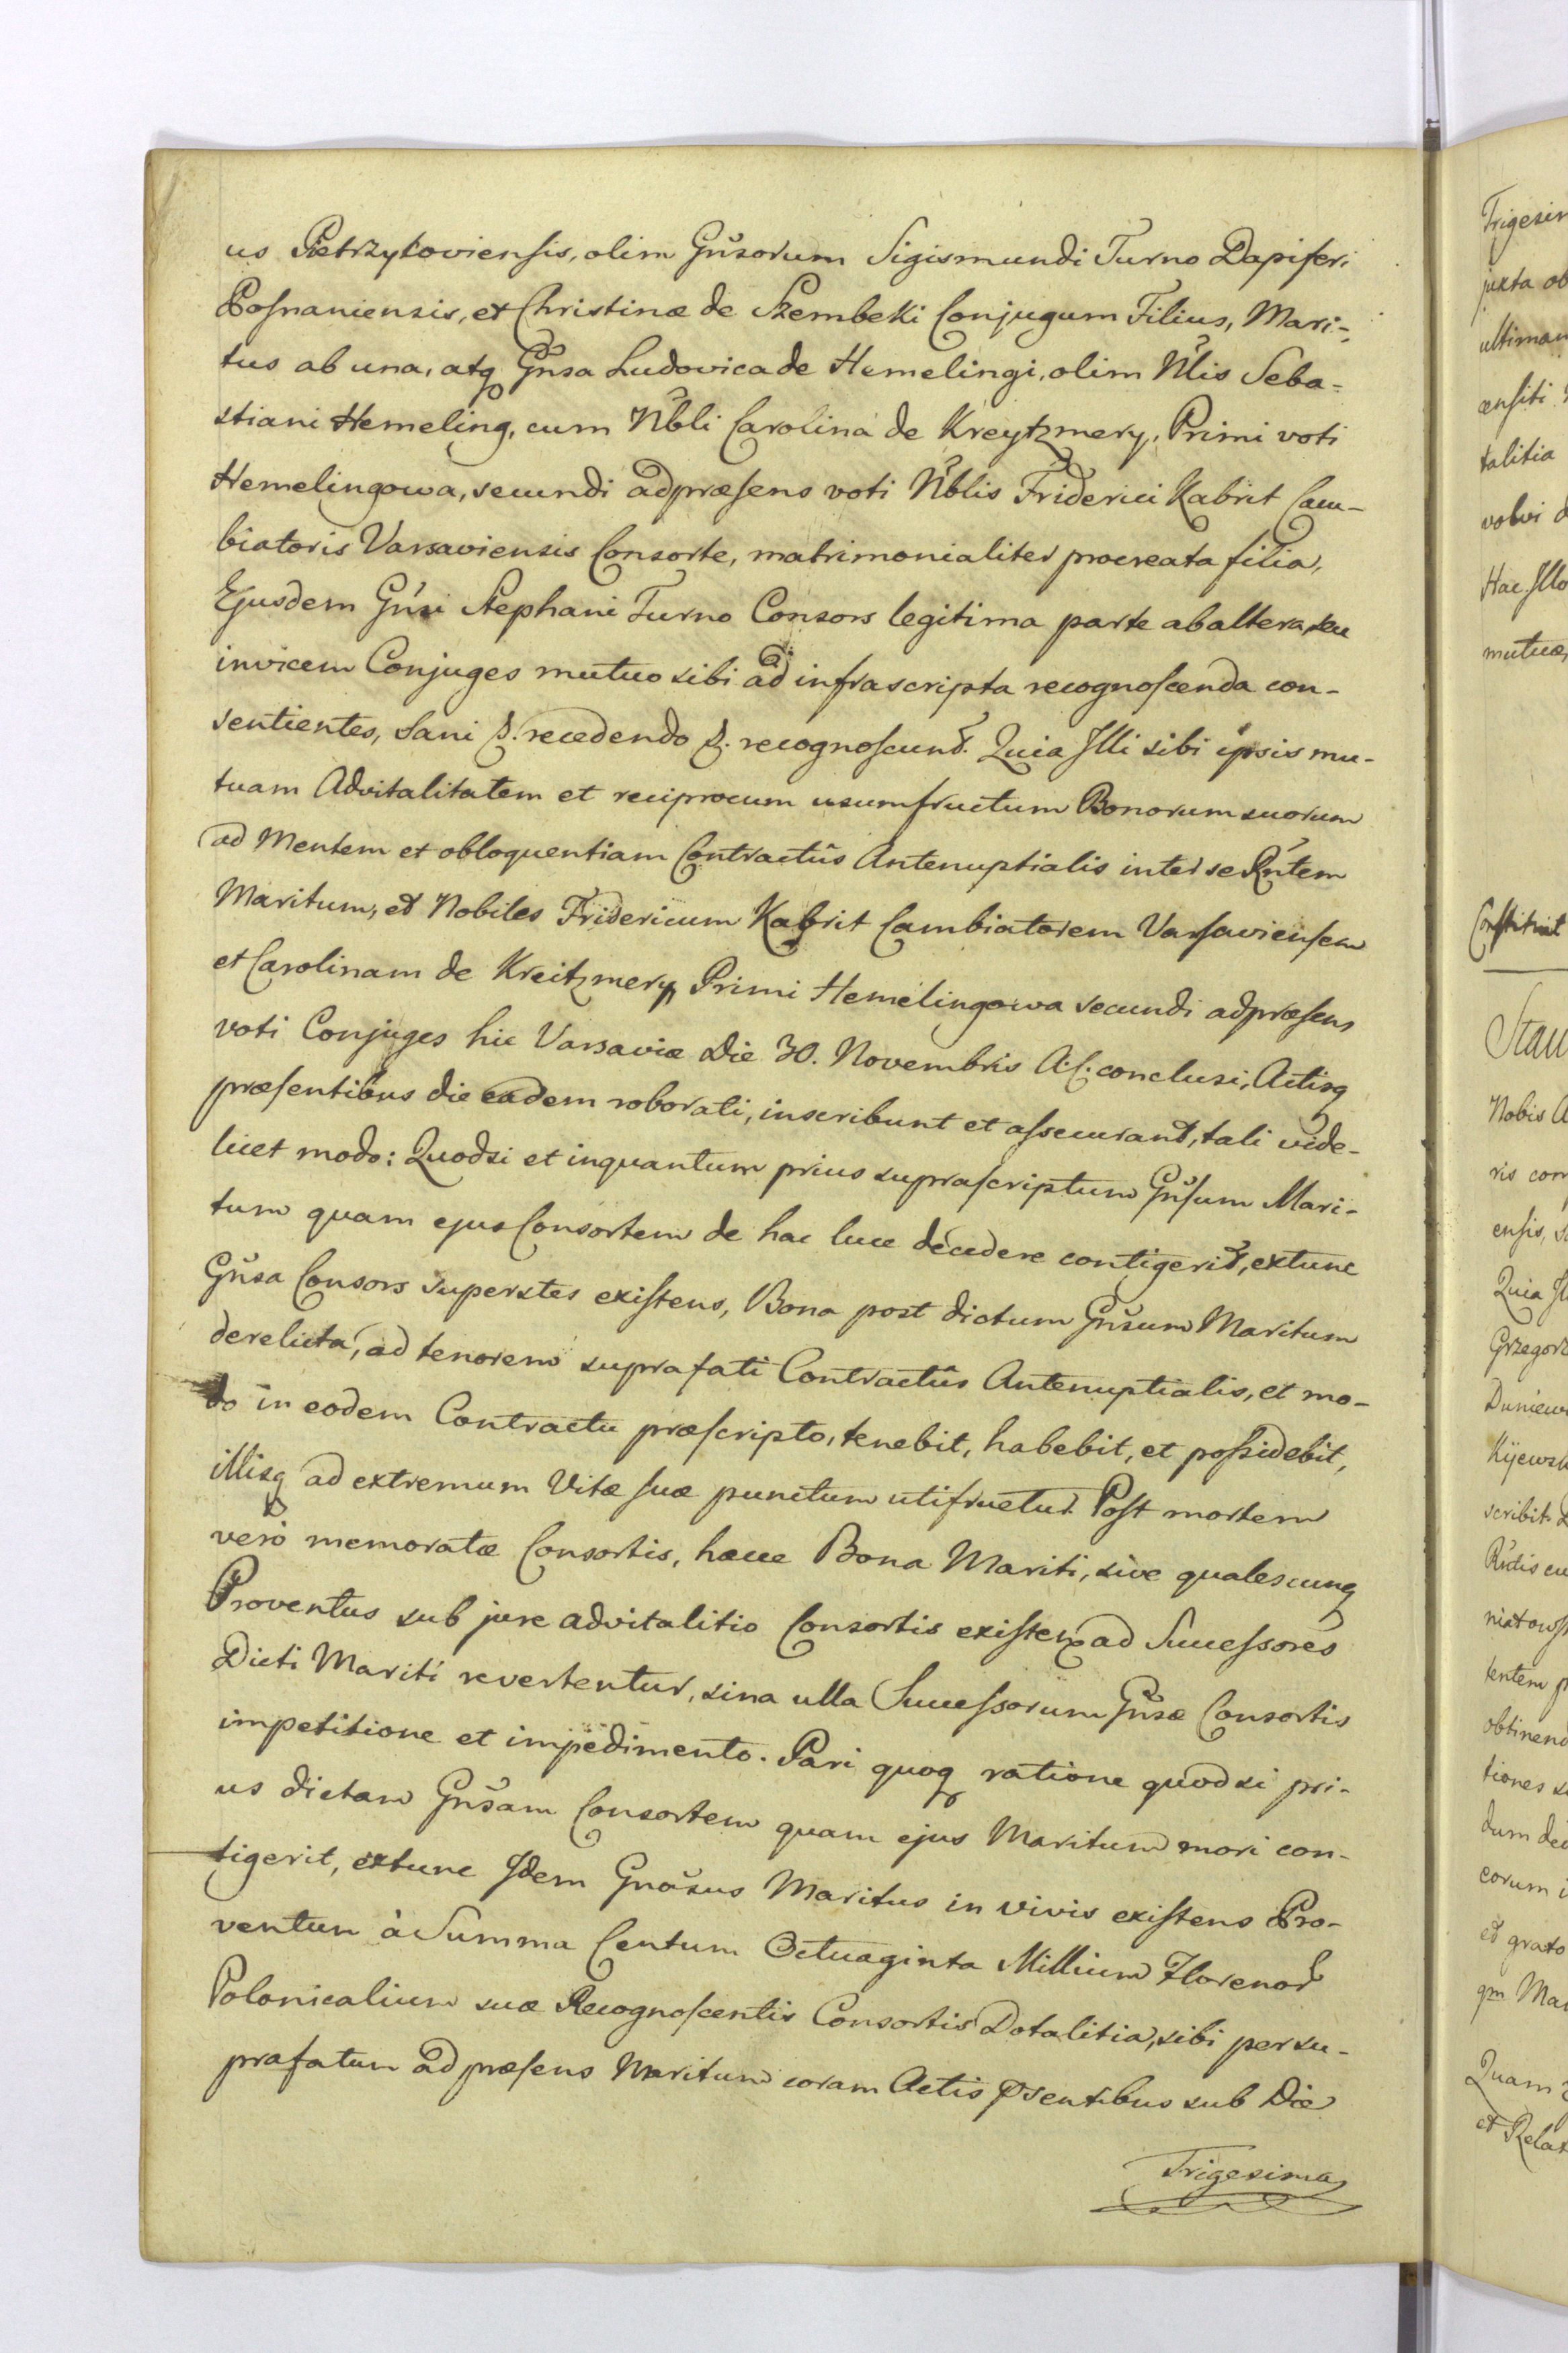 us Pietrzykoviensis, olim Gnsorum Sigismundi Turno Dapiferi
Posnaniensis, et Christinæ de Szembeki Conjugum Filius, Mari-
tus ab una, atq Gnsa Ludovica de Hemelingi, olim Nlis Seba-
stiani Hemeling, cum Nbli Carolina de Kreytzmery, Primi voti
Hemelingowa, secundi adpræsens voti Nblis Friderici Kabrit Cam-
biatoris Varsaviensis Consorte, matrimonialiter procreata filia,
Ejusdem Gnsi Stephani Turno Consors legitima parte ab altera, seu
invicem Conjuges mutuo sibi ad infrascripta recognoscenda con-
sentientes, sani &. recedendo &. recognoscunt. Quia Illi sibi ipsis mu-
tuam Advitalitatem et reciprocum usumfructum Bonorum suorum
ad Mentem et obloquentiam Contractûs Antenuptialis inter se Rntem
Maritum, et Nobiles Fridericum Kabrit Cambiatorem Varsaviensem
et Carolinam de Kreitzmery Primi Hemelingowa secundi adpræsens
voti Conjuges hic Varsaviæ Die 30. Novembris A: C: conclusi, Actisq
præsentibus die eadem roborati, inscribunt et assecurant, tali vide-
licet modo: Quodsi et inquantum prius suprascriptum Gnsum Mari-
tum quam ejus Consortem de hac luce decedere contigerit, extunc
Gnsa Consors superstes existens, Bona post dictum Gnsum Maritum
derelicta, ad tenorem suprafati Contractûs Antenuptialis, et mo-
do in eodem Contractu præscripto, tenebit, habebit, et possidebit,
illisq ad extremum Vitæ suæ punctum utifruetur. Post mortem
verò memoratæ Consortis, hæcce Bona Mariti, sive qualescunq
Proventus sub jure advitalitio Consortis existen ad Successores
Dicti Mariti revertentur, sina ulla Successorum Gnsæ Consortis
impetitione et impedimento. Pari quoq ratione quodsi pri-
us dictam Gnsam Consortem quam ejus Maritum mori con-
tigerit, extunc Idem Gnosus Maritus in vivis existens Pro-
ventum à Summa Centum Octuaginta Millium Florenor
Polonicalium suæ Recognoscentis Consortis Dotalitia, sibi per su-
prafatum ad præsens Maritum coram Actis psentibus sub Die
Trigesima
Trigesim
juxta ob
ultiman
censiti
talitia
volvi d
Hac Illo
mutuæ,
Constituit
Stan
Nobis A
ris com
ensis, S
Quia Il
Grzegorz
Duniew
Kijewsk
scribit
Rndis cu
niatowsk
tentem p
obtinend
tiones s
dum dec
eorum i
et grato
qm Mar
Quam
et Relat